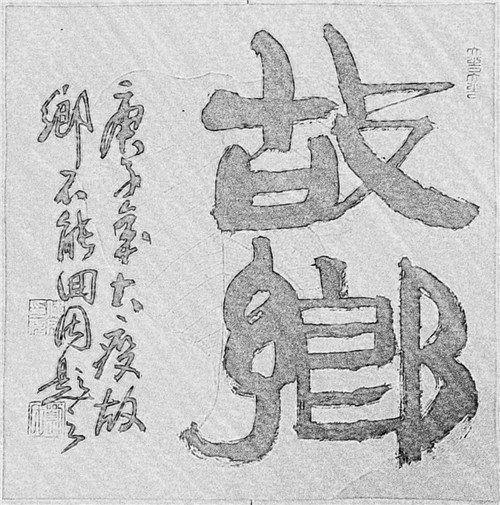 故鄉
庚子年大疫故
鄉不能回因題之